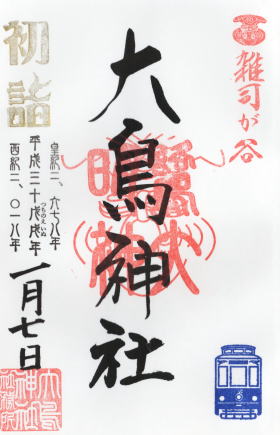 雑司が谷
大鳥神社
初詣
皇紀二、六七八年
平成三十戊戌年
つちのえいぬ
西紀二、〇一八年
一月七日
大鳥
神社
社務所